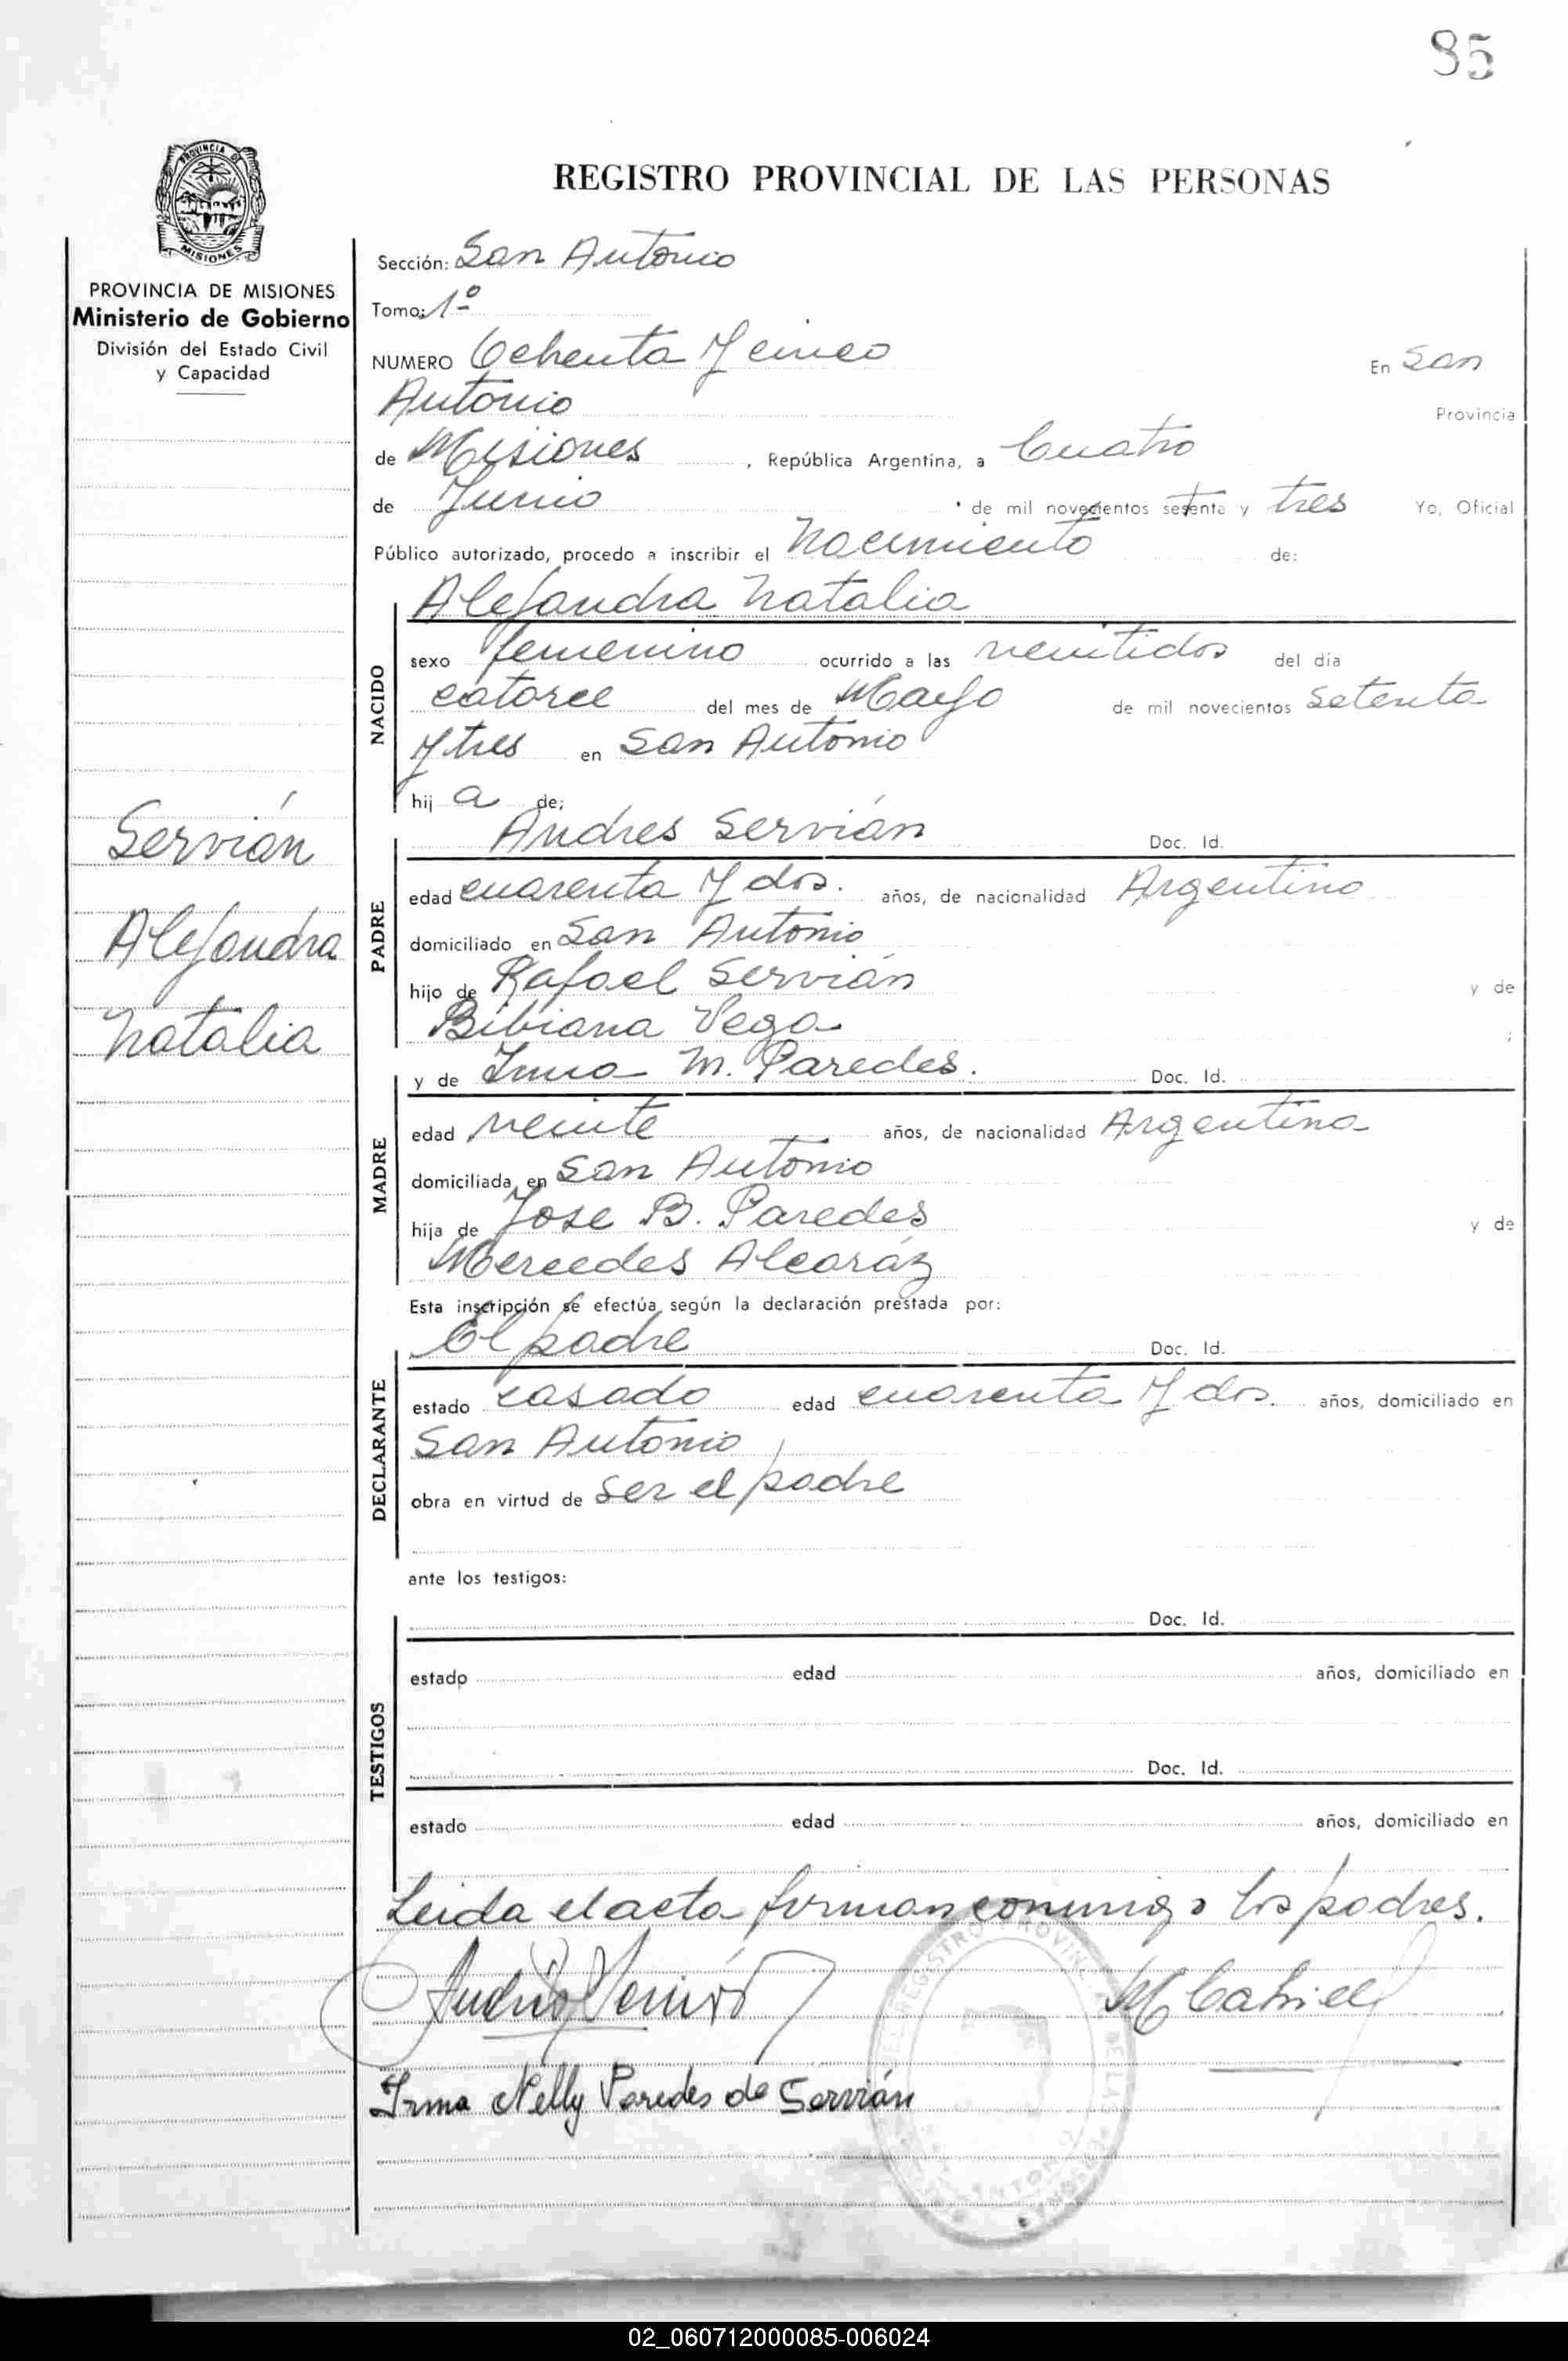 85
PROVINCIA DE MISIONES
PROVINCIA DE MISIONES
Ministerio de Gobierno
División del Estado Civil
y Capacidad
Servián
Alejandra
Natalia
REGISTRO PROVINCIAL DE LAS PERSONAS
Sección: San Antonio
Tomo: 1º
NUMERO Ochenta y cinco En San
Antonio Provincia
de Misiones , República Argentina, a Cuatro
de Junio de mil novecientos setenta y tres Yo, Oficial
Público autorizado, procedo a inscribir el Nacimiento de:
Alejandra Natalia
NACIDO
sexo femenino ocurrido a las veintidos del día
catorce del mes de Mayo de mil novecientos setenta
y tres en San Antonio
hij a de:
Andres Servián Doc. Id.
PADRE
edad cuarenta y dos. años, de nacionalidad Argentino
domiciliado en San Antonio
hijo de Rafael Servián y de
Bibiana Vega
y de Irma M. Paredes. Doc. Id.
MADRE
edad veinte años, de nacionalidad Argentina
domiciliada en San Antonio
hija de Jose B. Paredes y de
Mercedes Alcaráz
Esta inscripción se efectúa según la declaración prestada por:
El padre Doc. Id.
DECLARANTE
estado casado edad cuarenta y dos. años, domiciliado en
San Antonio
obra en virtud de ser el padre
ante los testigos:
Doc. Id.
TESTIGOS
estado edad años, domiciliado en
Doc. Id.
estado edad años, domiciliado en
Leida el acta firman conmigo los padres.
Irma Nelly Paredes de Servián
02_060712000085-006024